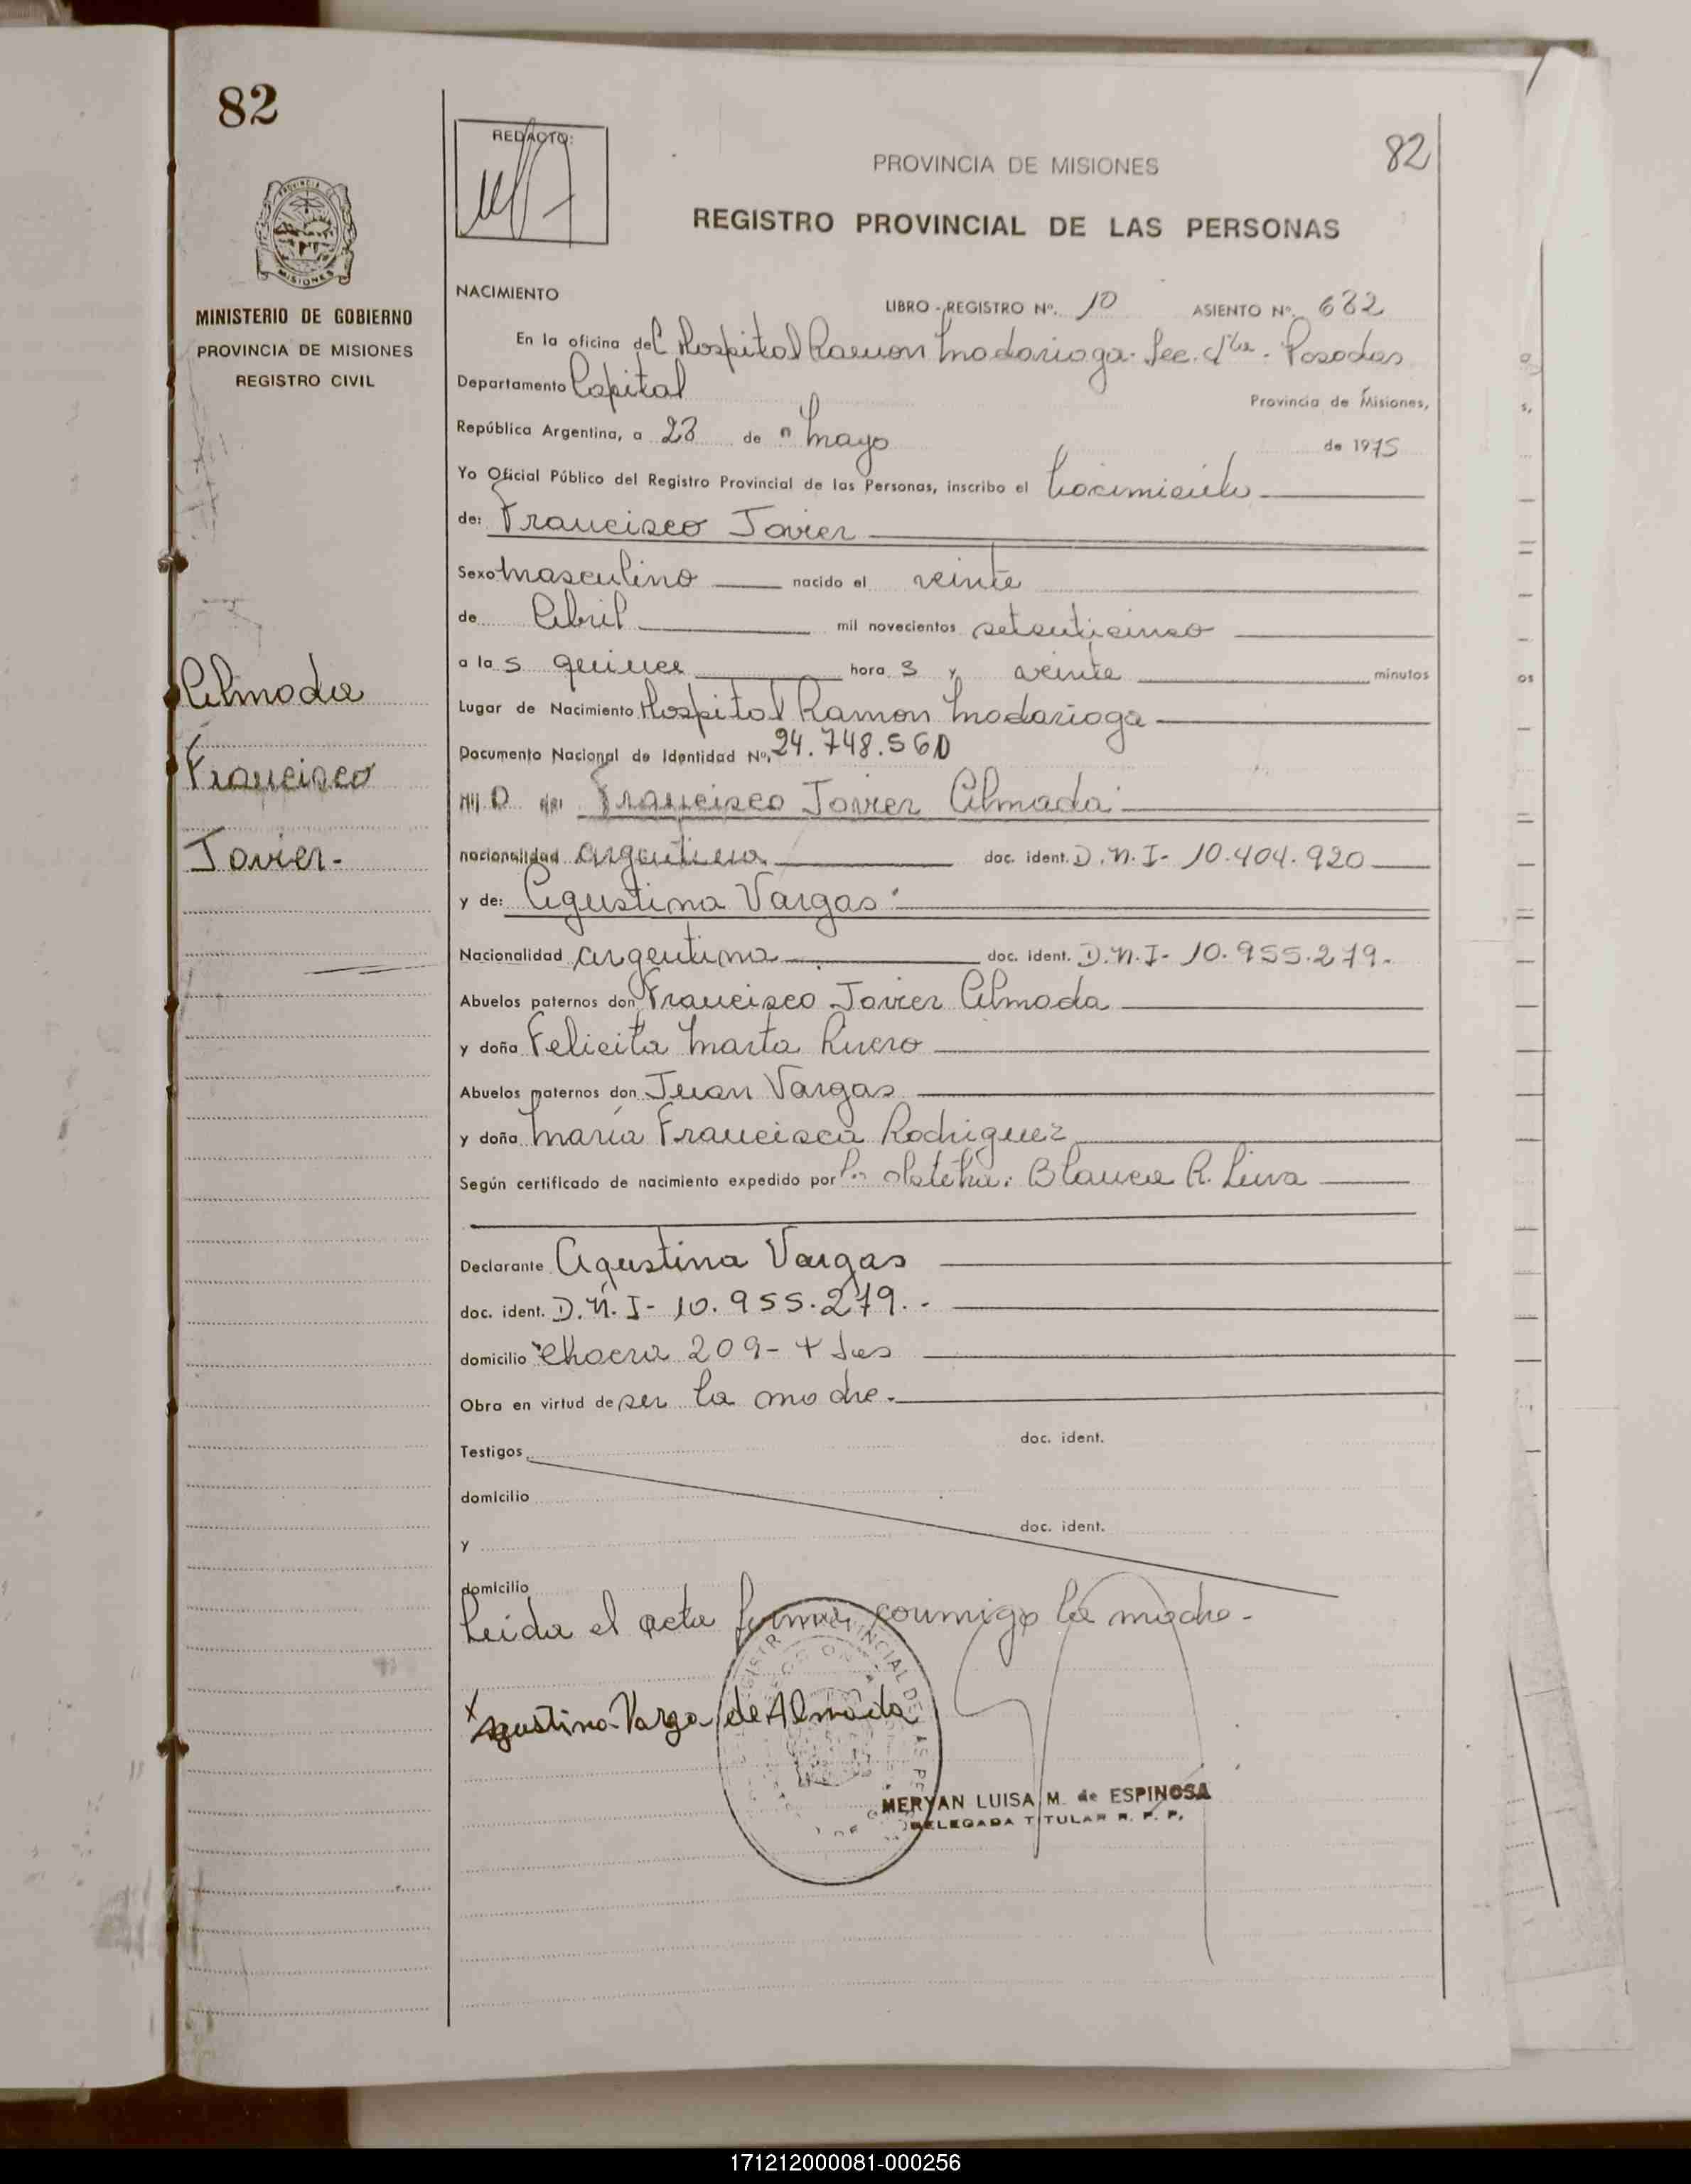 82
PROVINCIA DE
MISIONES
MINISTERIO DE GOBIERNO
PROVINCIA DE MISIONES
REGISTRO CIVIL
Almada
Francisco
Javier.-
REDACTO:
82
PROVINCIA DE MISIONES
REGISTRO PROVINCIAL DE LAS PERSONAS
NACIMIENTO
LIBRO - REGISTRO Nº. 10 ASIENTO Nº. 632
En la oficina del Hospital Ramon Madariaga - Sec. - Posadas
Departamento Capital Provincia de Misiones,
República Argentina, a 23 de Mayo de 1975
Yo Oficial Público del Registro Provincial de las Personas, inscribo el Nacimiento
de: Francisco Javier
Sexo Masculino nacido el veinte
de Abril mil novecientos setenticinco
a la s quince hora s y veinte minutos
Lugar de Nacimiento Hospital Ramon Madariaga
Documento Nacional de Identidad Nº. 24.748.560
Francisco Javier Almada
nacionalidad argentina doc. ident. D.N.I- 10.404.920
y de: Agustina Vargas
Nacionalidad argentina doc. ident. D.N.I- 10.955.279.
Abuelos paternos don Francisco Javier Almada
y doña Felicita Marta Rivero
Abuelos maternos don Juan Vargas
y doña María Francisca Rodriguez
Según certificado de nacimiento expedido por la obstetra: Blanca R.
Declarante Agustina Vargas
doc. ident. D.N.I- 10.955.279.-
domicilio Chacra 209-
Obra en virtud de ser la madre.
Testigos doc. ident.
domicilio
y doc. ident.
domicilio
Leida el acta firma conmigo la madre.
x Agustina Varga de Almada
MERYAN LUISA M. de ESPINOSA
DELEGADA TITULAR R. P. P.
171212000081-000256